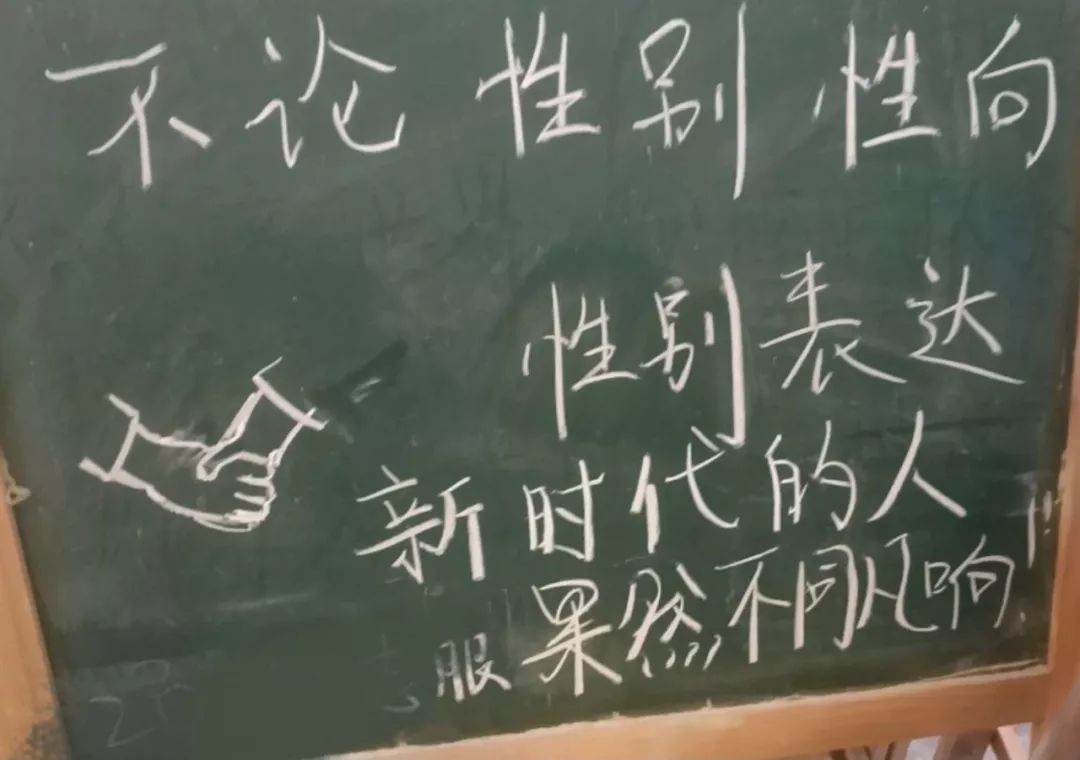 不论 性别 性向
性别表达
新时代的人
服果然不同凡响!!